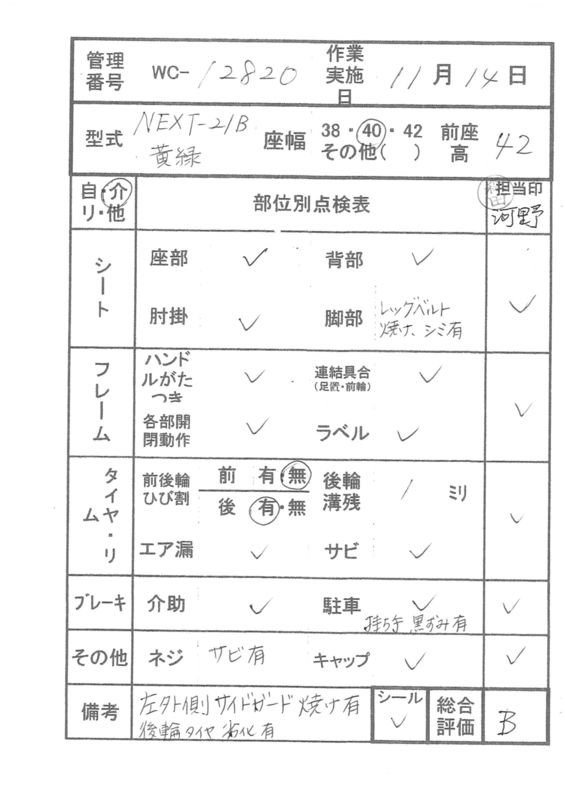 管理番号 WC-12820 作業実施日 11月14日
型式 NEXT-21B 黄緑 座幅 38・40・42 その他( ) 前座高 42
自・介 リ・他 部位別点検表 担当印 河野
シート 座部 ✓ 背部 ✓ ✓
肘掛 ✓ 脚部 レッグベルト 焼け、シミ有
フレーム ハンドルがたつき ✓ 連結具合 (足置・前輪) ✓ ✓
各部開閉動作 ✓ ラベル ✓
タイヤ・リム 前後輪ひび割 前 有・無 後輪溝残 1 ミリ ✓
後 有・無
エア漏 ✓ サビ ✓
ブレーキ 介助 ✓ 駐車 ✓ ✓
持ち手 黒ずみ有
その他 ネジ サビ有 キャップ ✓ ✓
備考 左外側サイドガード 焼け有 シール ✓ 総合評価 B
後輪タイヤ 劣化有